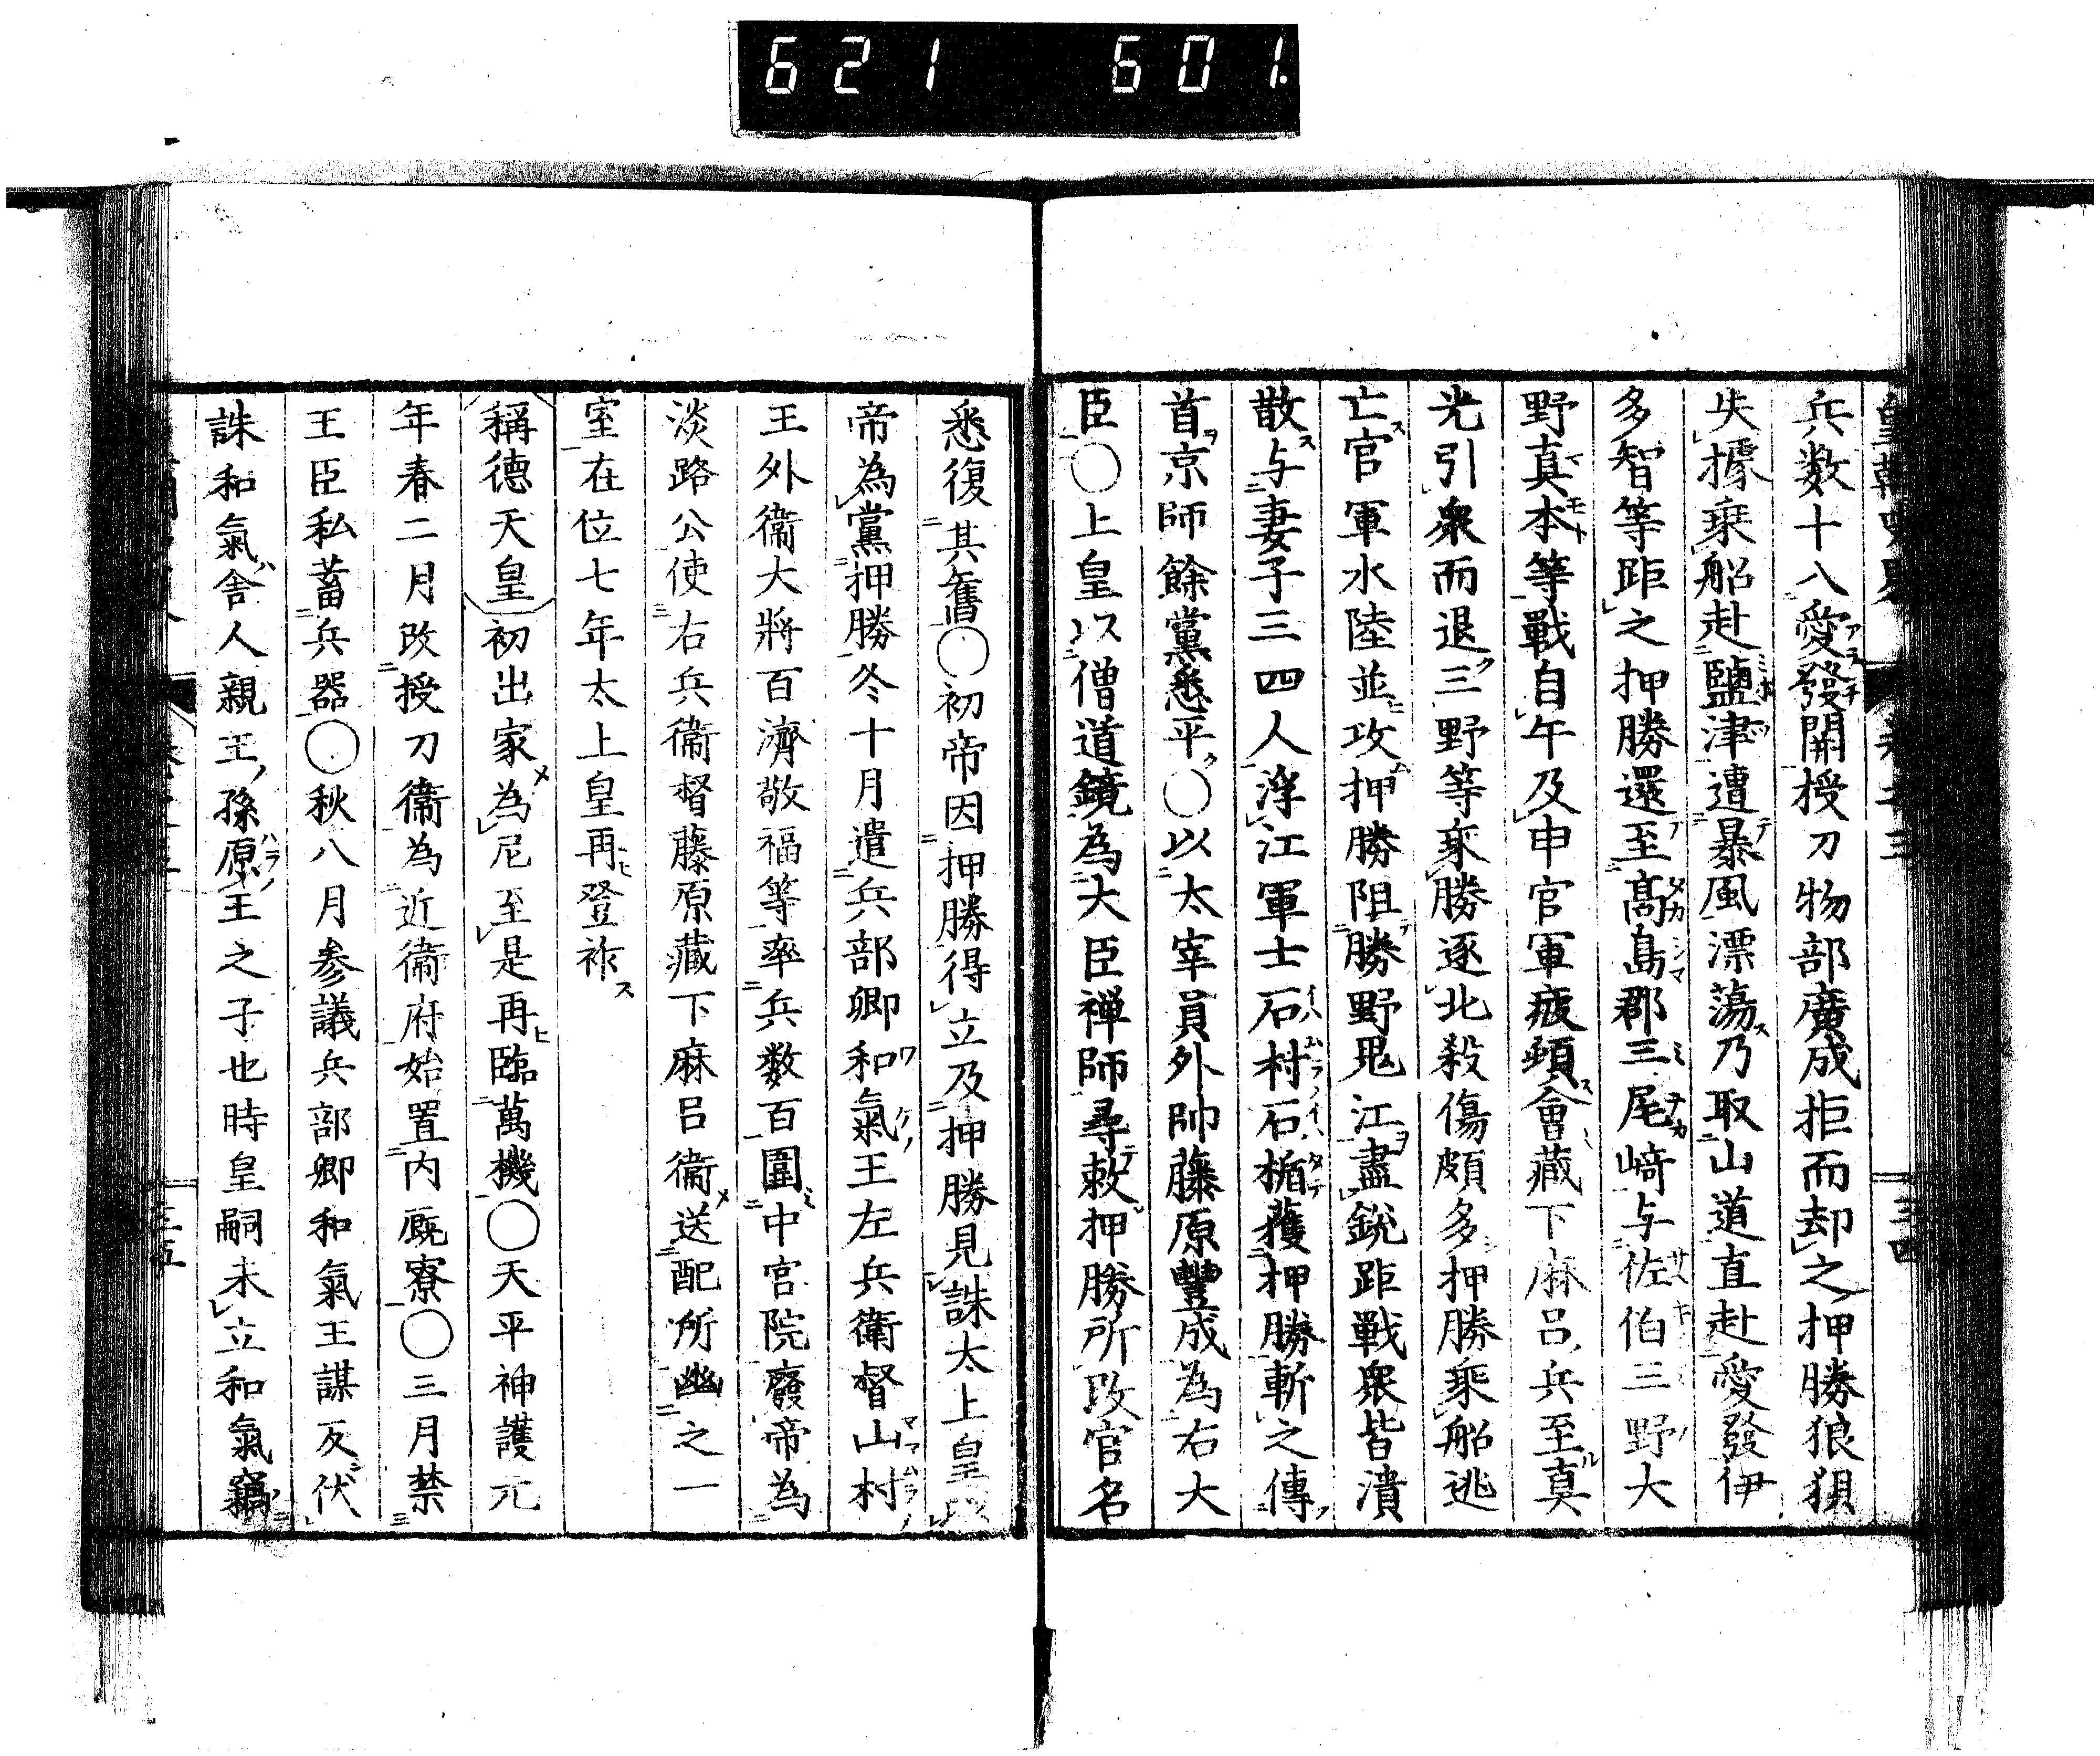 621 601.
兵数十八愛發開授刀物部廣成拒而却之押勝狼狽
失據乗船赴鹽津遭暴風漂蕩乃取山道直赴愛發伊
多智等距之押勝還至髙島郡三尾﨑与佐伯三野大
野真本等戰自午及申官軍疲頓會藏下麻呂兵至真
光引衆而退三野等乗勝逐北殺傷頗多押勝乘船逃
亡官軍水陸並攻押勝阻勝野鬼江盡銳距戰衆皆潰
散与妻子三四人浮江軍士石村石楯獲押勝斬之傳
首京師餘黨悉平○以太宰員外帥藤原豐成為右大
臣○上皇以僧道鏡為大臣禅師尋敕押勝所改官名
悉復其舊○初帝因押勝得立及押勝見誅太上皇以
帝為黨押勝冬十月遣兵部卿和氣王左兵衛督山村
王外衞大將百濟敬福等率兵数百圍中宮院廢帝為
淡路公使右兵衞督藤原藏下麻呂衞送配所幽之一
室在位七年太上皇再登祚
稱德天皇初出家為尼至是再臨萬機○天平神護元
年春二月改授刀衞為近衞府始置内厩寮○三月禁
王臣私蓄兵器○秋八月参議兵部卿和氣王謀反伏
誅和氣舎人親王孫原王之子也時皇嗣未立和氣竊